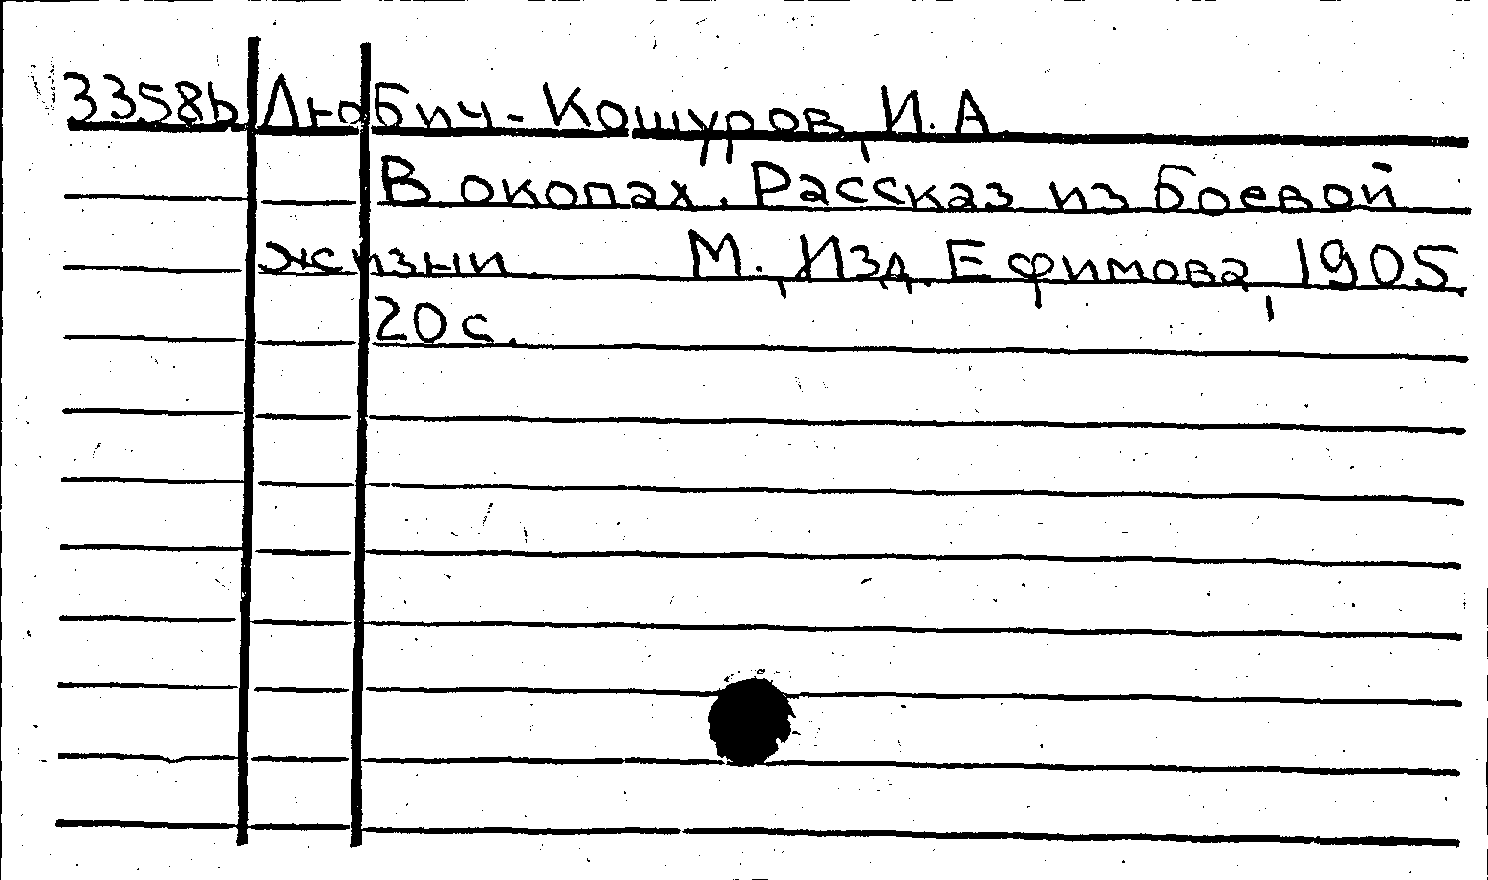 3358b Любич-Кошуров, И. А
В окопах. Рассказ из боевой
жизни М., Изд. Ефимова, 1905
20 с.